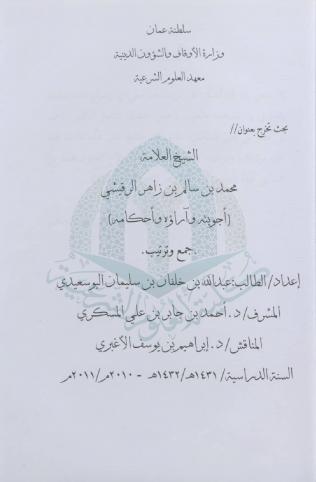 سلطنة عمان
وزارة الأوقاف والشؤون الدينية
معهد العلوم الشرعية
بحث تخرج بعنوان//
الشيخ العلامة
محمد بن سالم بن زاهر الرقيشي
(أجوبته وآراؤه وأحكامه)
.جمع وترتيب.
إعداد/ الطالب: عبدالله بن خلفان بن سليمان البوسعيدي
المشرف/ د. أحمد بن جابر بن علي المسكري
المناقش/ د. إبراهيم بن يوسف الأغبري
السنة الدراسية/ ١٤٣١هـ/١٤٣٢هـ - ٢٠١٠م/٢٠١١م